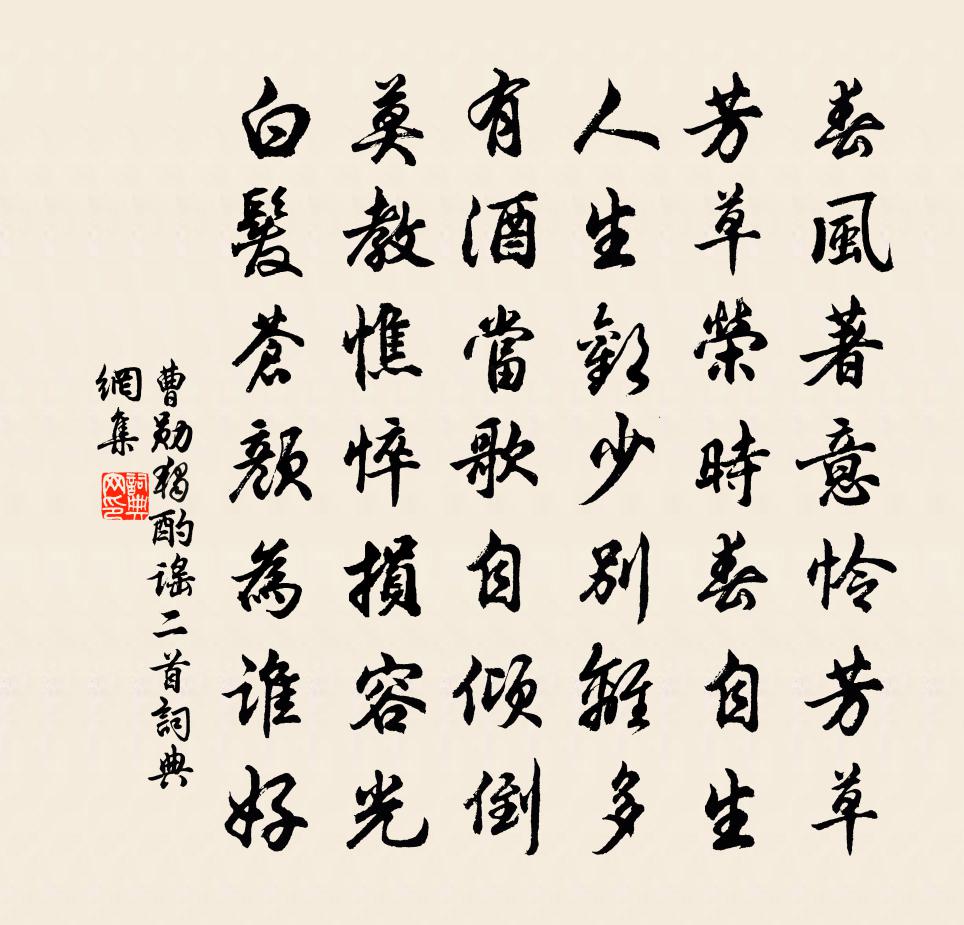 春風著意怜芳草
芳草榮時春自生
人生歡少別離多
有酒當歌自傾倒
莫教憔悴損容光
白髮蒼顏為誰好
曹勛獨酌謠二首詞典
網集
詞典
网印